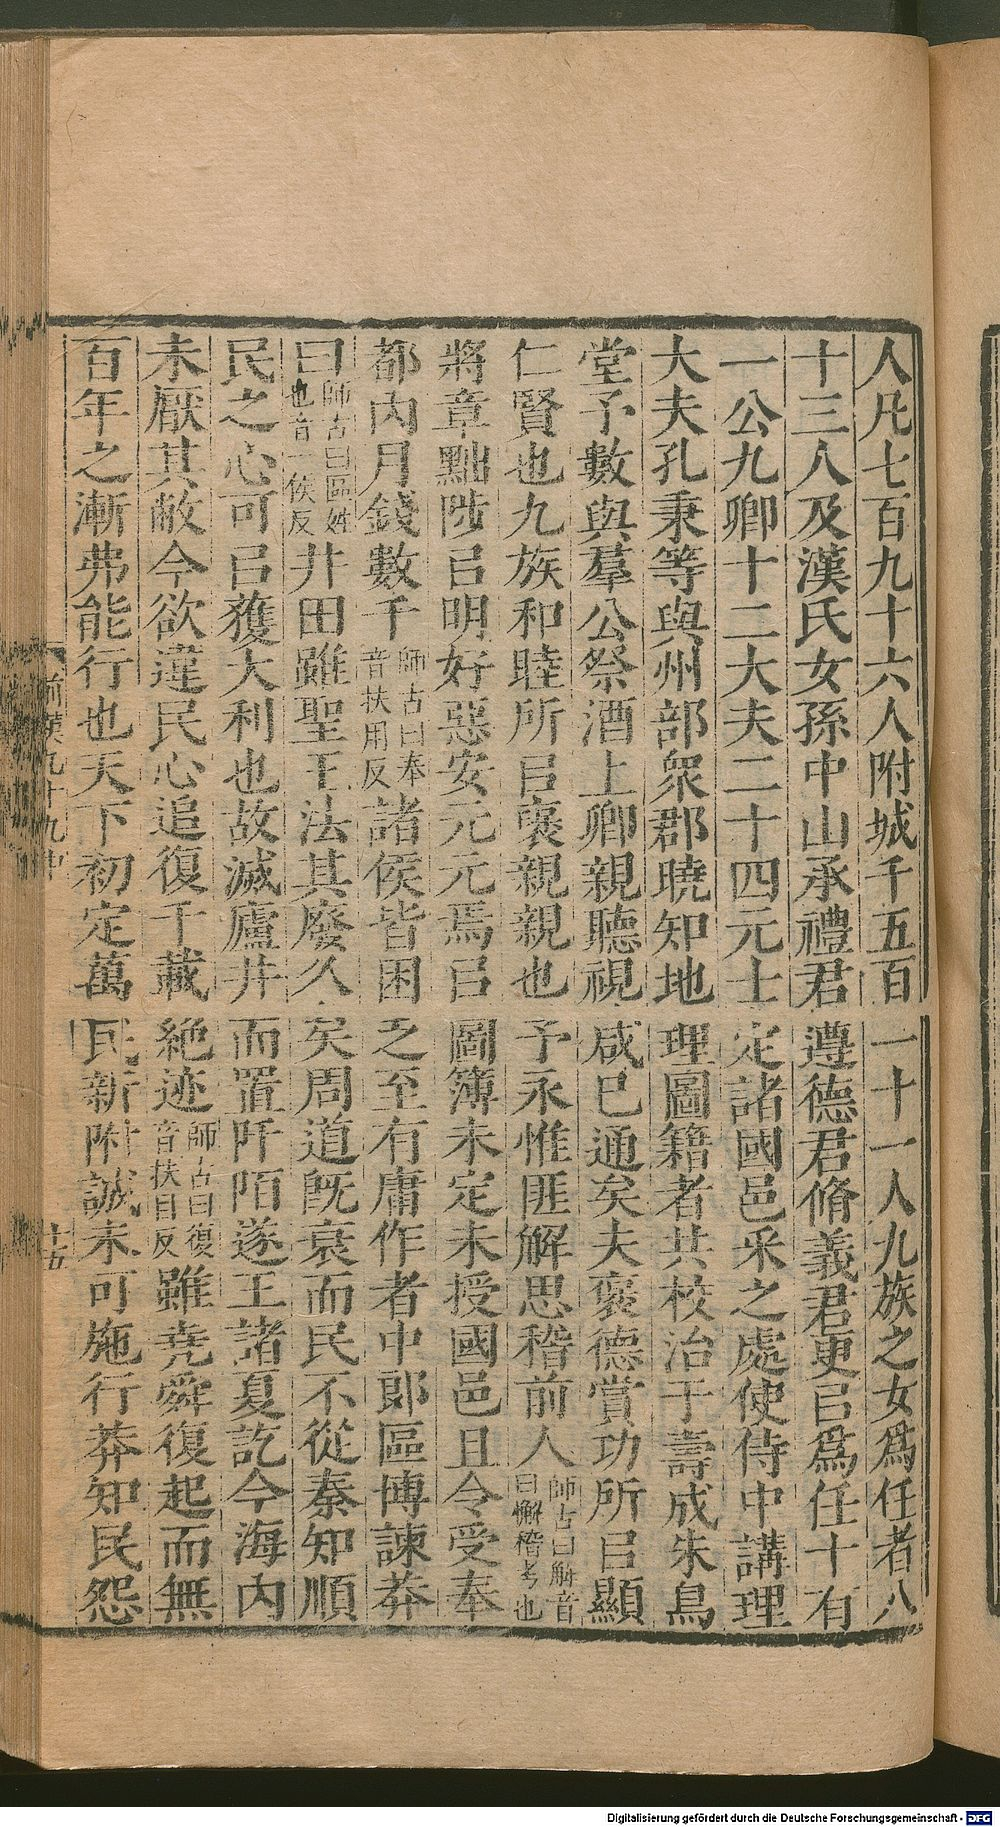 人凡七百九十六人附城千五百一十一人九族之女爲任者八
十三人及漢氏女孫中山承禮君遵德君脩義君更㠯爲任十有
一公九卿十二大夫二十四元士定諸國邑采之處使侍中講理
大夫孔秉等與州部衆郡曉知地理圖籍者共校治于壽成朱鳥
堂予數與羣公祭酒上卿親聽視咸已通矣夫襃德賞功所㠯顯
仁賢也九族和睦所㠯襃親親也予永惟匪解思稽前人師古曰解音曰懈稽考也
將章黜陟㠯明好惡安元元焉㠯圖簿未定未授國邑且令受奉
都內月錢數千師古曰奉音扶用反諸侯皆困之至有庸作者中郎區博諫莽
曰師古曰區姓也音一侯反井田雖聖王法其廢久矣周道旣衰而民不從秦知順
民之心可㠯獲大利也故滅廬井而置阡陌遂王諸夏訖今海內
未厭其敝今欲違民心追復千載絶迹師古曰復音扶目反雖堯舜復起而無
百年之漸弗能行也天下初定萬民新附誠未可施行莽知民怨
前漢九十九中
十五
Digitalisierung gefördert durch die Deutsche Forschungsgemeinschaft - DFG